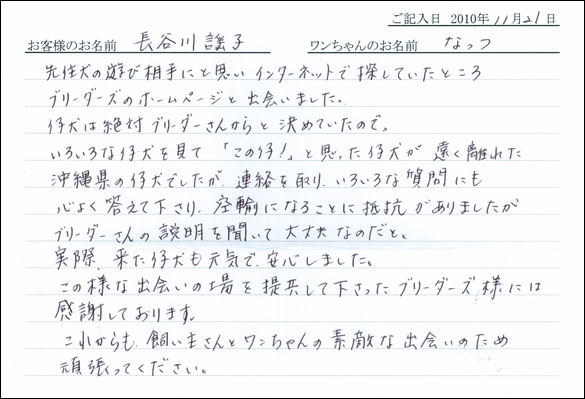 ご記入日 2010年 11月21日
お客様のお名前 長谷川謡子 ワンちゃんのお名前 なっつ
先住犬の遊び相手にと思い インターネットで探していたところ
ブリーダーズのホームページと出会いました。
仔犬は絶対ブリーダーさんからと決めていたので、
いろいろな仔犬を見て「この仔!」と思った仔犬が 遠く離れた
沖縄県の仔犬でしたが、連絡を取り、いろいろな質問にも
心よく答えて下さり、空輸になることに抵抗がありましたが
ブリーダーさんの説明を聞いて大丈夫なのだと。
実際、来た仔犬も元気で、安心しました。
この様な出会いの場を提供して下さったブリーダーズ様には
感謝しております。
これからも、飼い主さんとワンちゃんの素敵な出会いのため
頑張ってください。